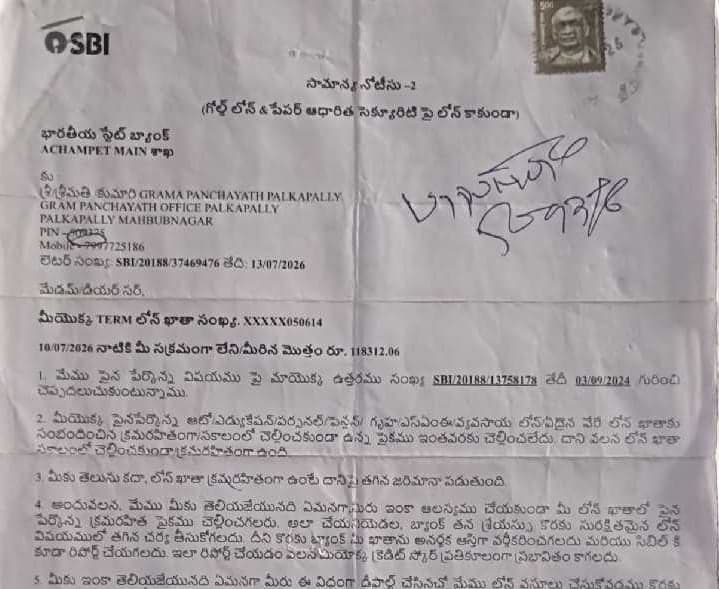 SBI
సామాన్య నోటీసు -2
(గోల్డ్ లోన్ & పేపర్ ఆధారిత సెక్యూరిటీ పై లోన్ కాకుండా)
భారతీయ స్టేట్ బ్యాంక్
ACHAMPET MAIN శాఖ
కు
శ్రీ/శ్రీమతి కుమారి GRAMA PANCHAYATH PALKAPALLY
GRAM PANCHAYATH OFFICE PALKAPALLY
PALKAPALLY MAHBUBNAGAR
PIN -
Mobile- 7997725186
లెటర్ సంఖ్య: SBI/20188/37469476 తేది: 13/07/2026
మేడమ్/డియర్ సర్,
మీయొక్క TERM లోన్ ఖాతా సంఖ్య. XXXXX050614
10/07/2026 నాటికి మీ సక్రమంగా లేని/మీరిన మొత్తం రూ. 118312.06
1. మేము పైన పేర్కొన్న విషయము పై మాయొక్క ఉత్తరము సంఖ్య SBI/20188/13758178 తేదీ 03/09/2024 గురించి
చెప్పదలుచుకుంటున్నాము.
2. మీయొక్క పైనపేర్కొన్న ఆటో/ఎడ్యుకేషన్/పర్సనల్/పెన్షన్/ గృహ/ఎస్ఎంఈ/వ్యవసాయ లోన్/ఏదైన వేరే లోన్ ఖాతాకు
సంబంధించిన క్రమరహితంగా/సకాలంలో చెల్లించకుండా ఉన్న పైకము ఇంతవరకు చెల్లించలేదు. దాని వలన లోన్ ఖాతా
సకాలంలో చెల్లించకుండా/క్రమరహితంగా ఉంది.
3. మీకు తెలుసు కదా, లోన్ ఖాతా క్రమరహితంగా ఉంటే దానిపై తగిన జరిమానా పడుతుంది.
4. అందువలన, మేము మీకు తెలియజేయునది ఏమనగా,మీరు ఇంకా ఆలస్యము చేయకుండా మీ లోన్ ఖాతాలో పైన
పేర్కొన్న క్రమరహిత పైకము చెల్లించగలరు. అలా చేయనియెడల, బ్యాంక్ తన శ్రేయస్సు కొరకు సురక్షితమైన లోన్
విషయములో తగిన చర్య తీసుకోగలదు. దీని కొరకు బ్యాంక్ మీ ఖాతాను అనర్ధక ఆస్తిగా వర్గీకరించగలదు మరియు సిబిల్ కి
కూడా రిపోర్ట్ చేయగలదు. ఇలా రిపోర్ట్ చేయడం వలన మీయొక్క క్రెడిట్ స్కోర్ ప్రతికూలంగా ప్రభావితం కాగలదు.
5. మీకు ఇంకా తెలియజేయునది ఏమనగా మీరు ఈ విధంగా డీఫాల్ట్ చేసినచో మేము లోన్ వసూలు చేసుకోవడము కొరకు